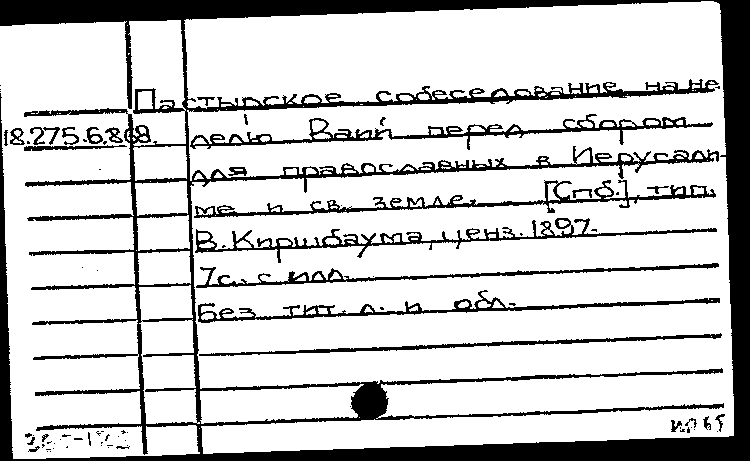 Пастырское собеседование на не
18.275.6.868. делю Ваий перед сбором
для православных в Иерусали-
ме и св. земле. [Спб.], тип.
В. Киршбаума, ценз. 1897.
7с., с илл.
Без тит. л. и обл.
ИП 65